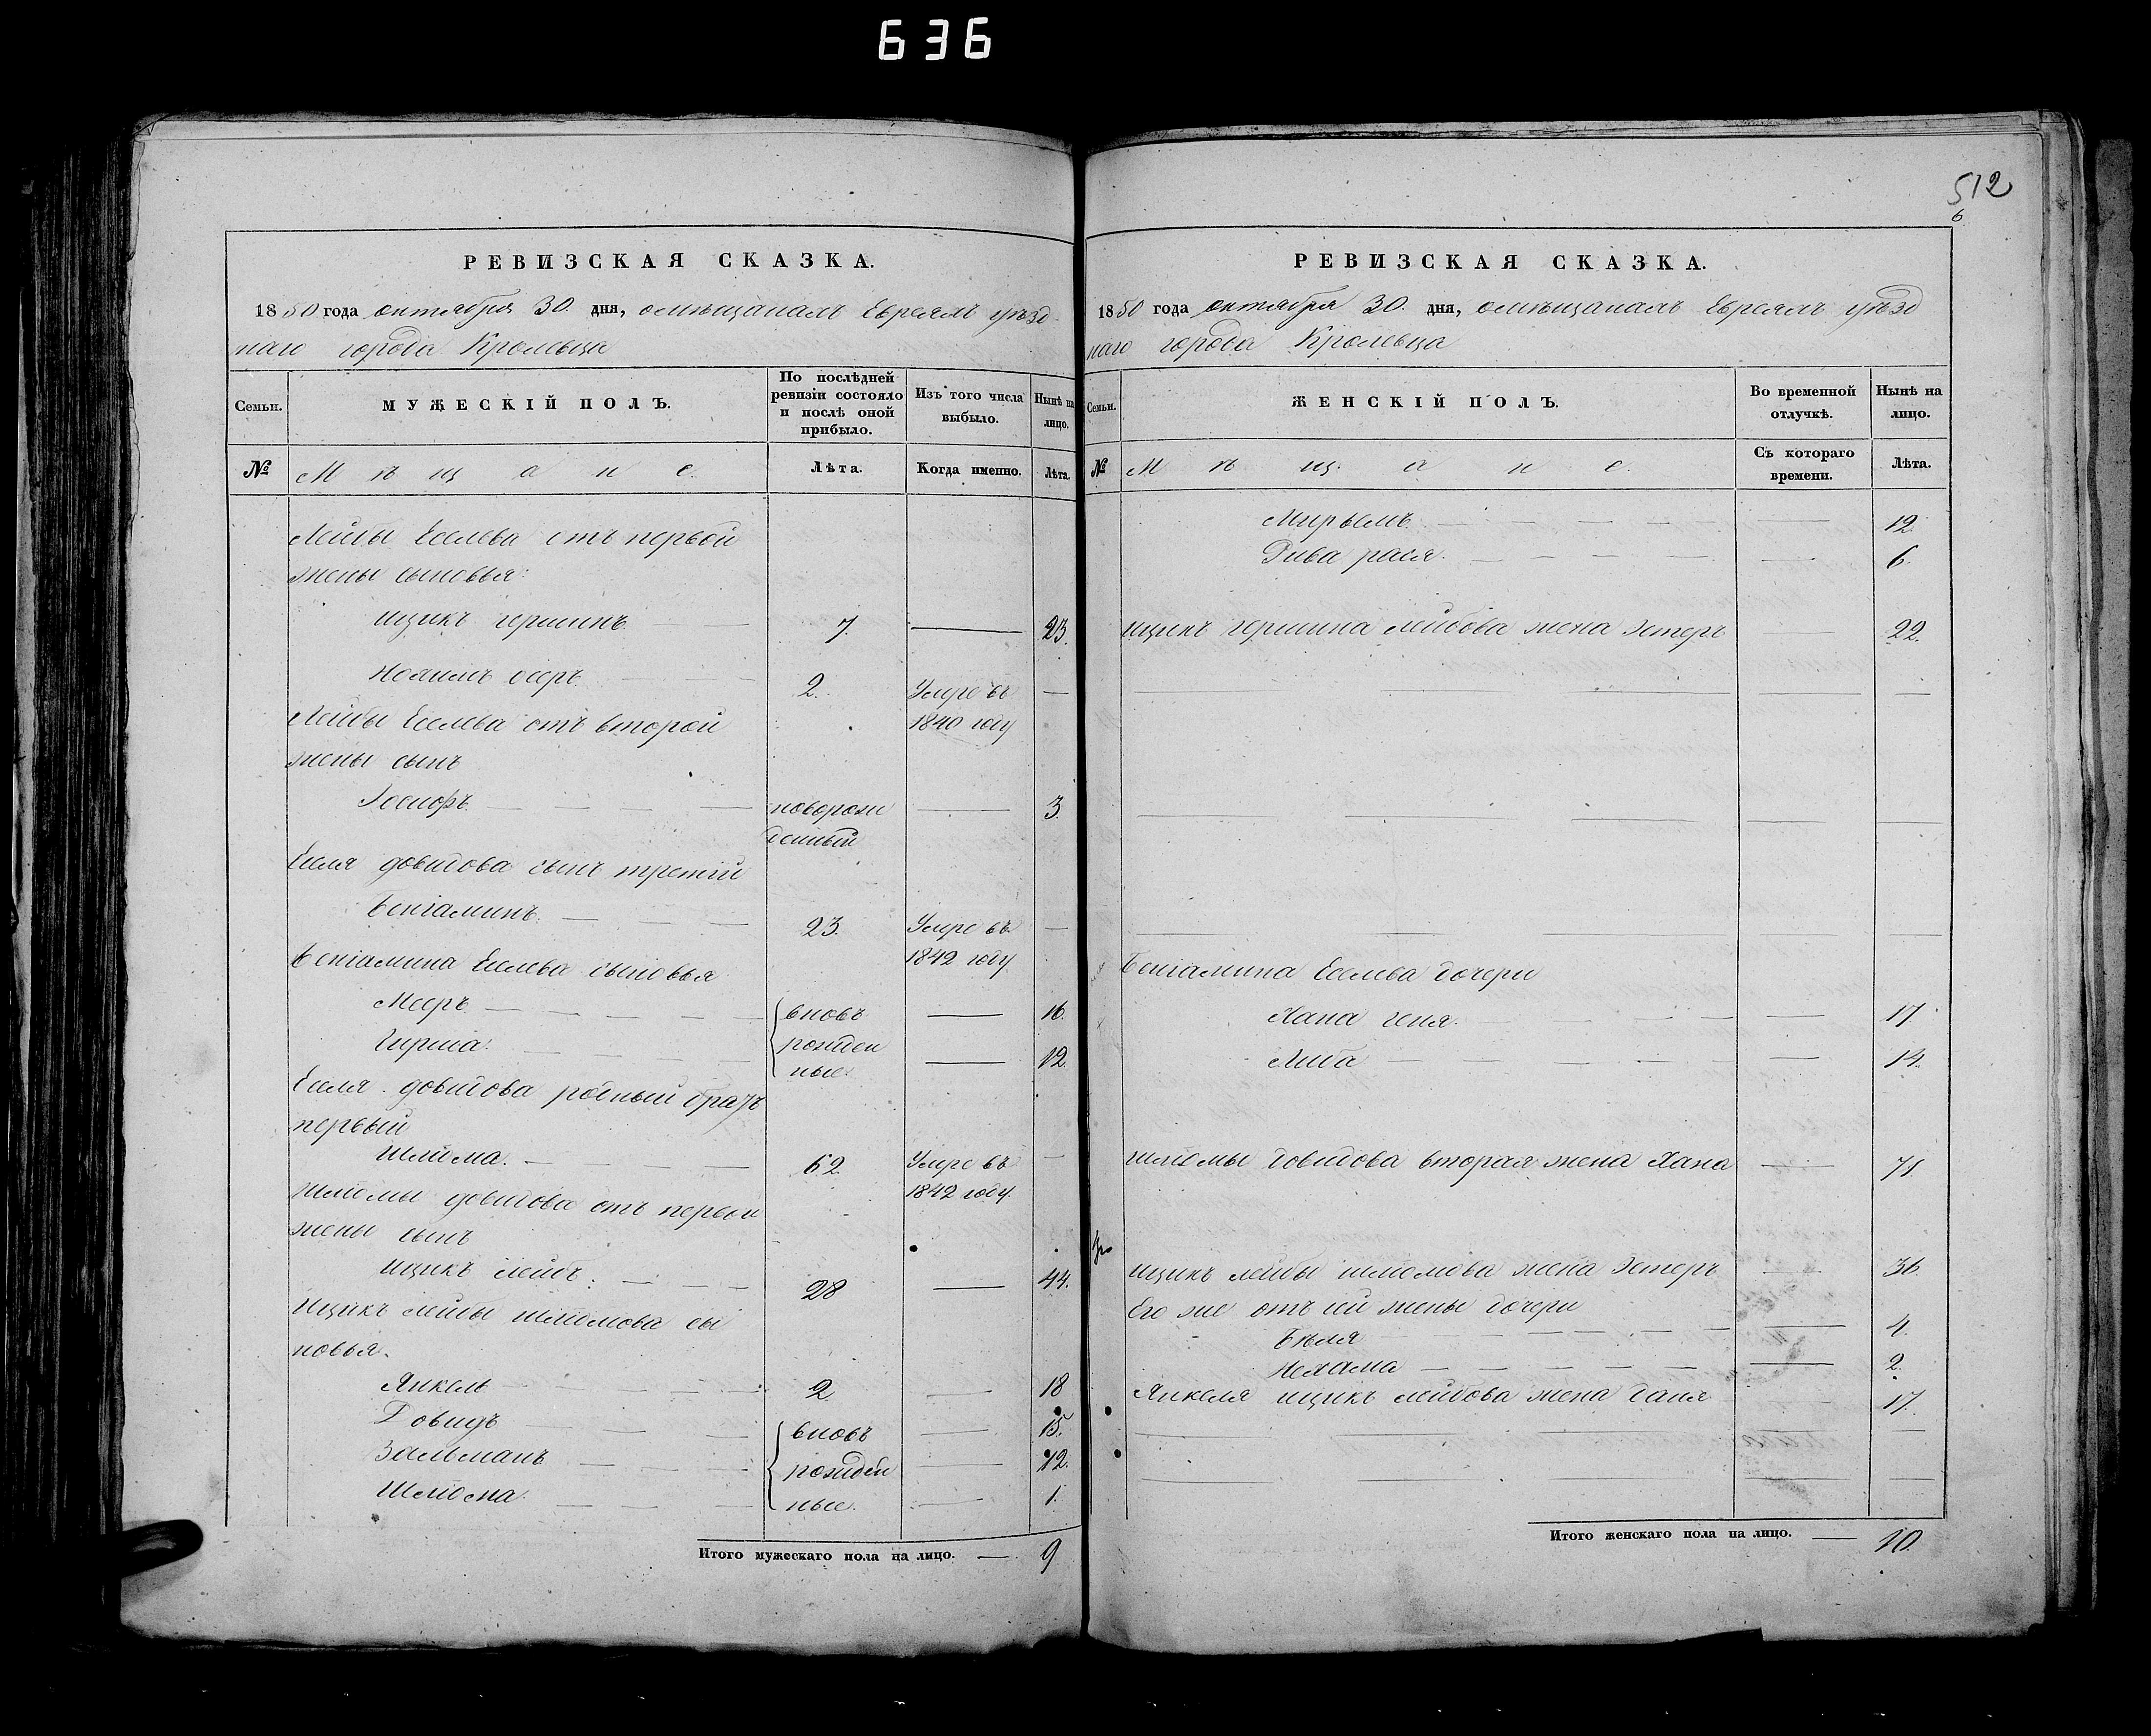 636
512
6
РЕВИЗСКАЯ СКАЗКА.
1850 года октября 30. дня, омѣщанамъ Евреямъ уѣзд
наго города Кролевца
Семьи.
МУЖЕСКІЙ ПОЛЪ.
По послѣдней ревизіи состояло и послѣ оной прибыло.
Изъ того числа выбыло.
Нынѣ на лицо.
№ Мѣщане. Лѣта. Когда именно. Лѣта.
Лейбы Еселева отъ первой
жены сыновья:
ицикъ гершинъ 7. 23.
Нохимъ осеръ 2. Умре въ
1840 году
Лейбы Еселева отъ второй
жены сынъ
Іосифъ новорож 3.
денный
Еселя довидова сынъ третій
Беніаминъ. 23. Умре въ
1842 году
Беніамина Еселева сыновья
Мееръ вновь 16.
Гирша. рожден 12.
ные.
Еселя довидова родный братъ
первый
Шлиома. 62. Умре въ
1842 году.
Шлиомы довидова отъ первой
жены сынъ
ицикъ лейбъ. 28 44.
Ицикъ лейбы шлиомова сы
новья.
Янкель 2. 18
Довидъ вновь 15.
Зальманъ рожден 12.
Шлиома. ные. 1.
Итого мужескаго пола на лицо. 9
РЕВИЗСКАЯ СКАЗКА.
1850 года октября 30. дня, омѣщанамъ Евреямъ уѣзд
наго города Кролевца
Семьи.
ЖЕНСКІЙ ПОЛЪ.
Во временной отлучкѣ.
Нынѣ на лицо.
№ Мѣщане. Съ котораго времени. Лѣта.
Мирьемъ 12.
Рива рася. 6.
ицикъ гершина лейбова жена эстеръ 22.
Беніамина Еселева дочери
Хана геня. 17.
Либа 14.
шлиомы довидова вторая жена Хана 71.
ицикъ лейбы шлиомова жена эстеръ 36.
Его же отъ сей жены дочери
Бѣля 4.
Нехама 2.
Янкеля ицикъ лейбова жена баня 17.
Итого женскаго пола на лицо. 10.